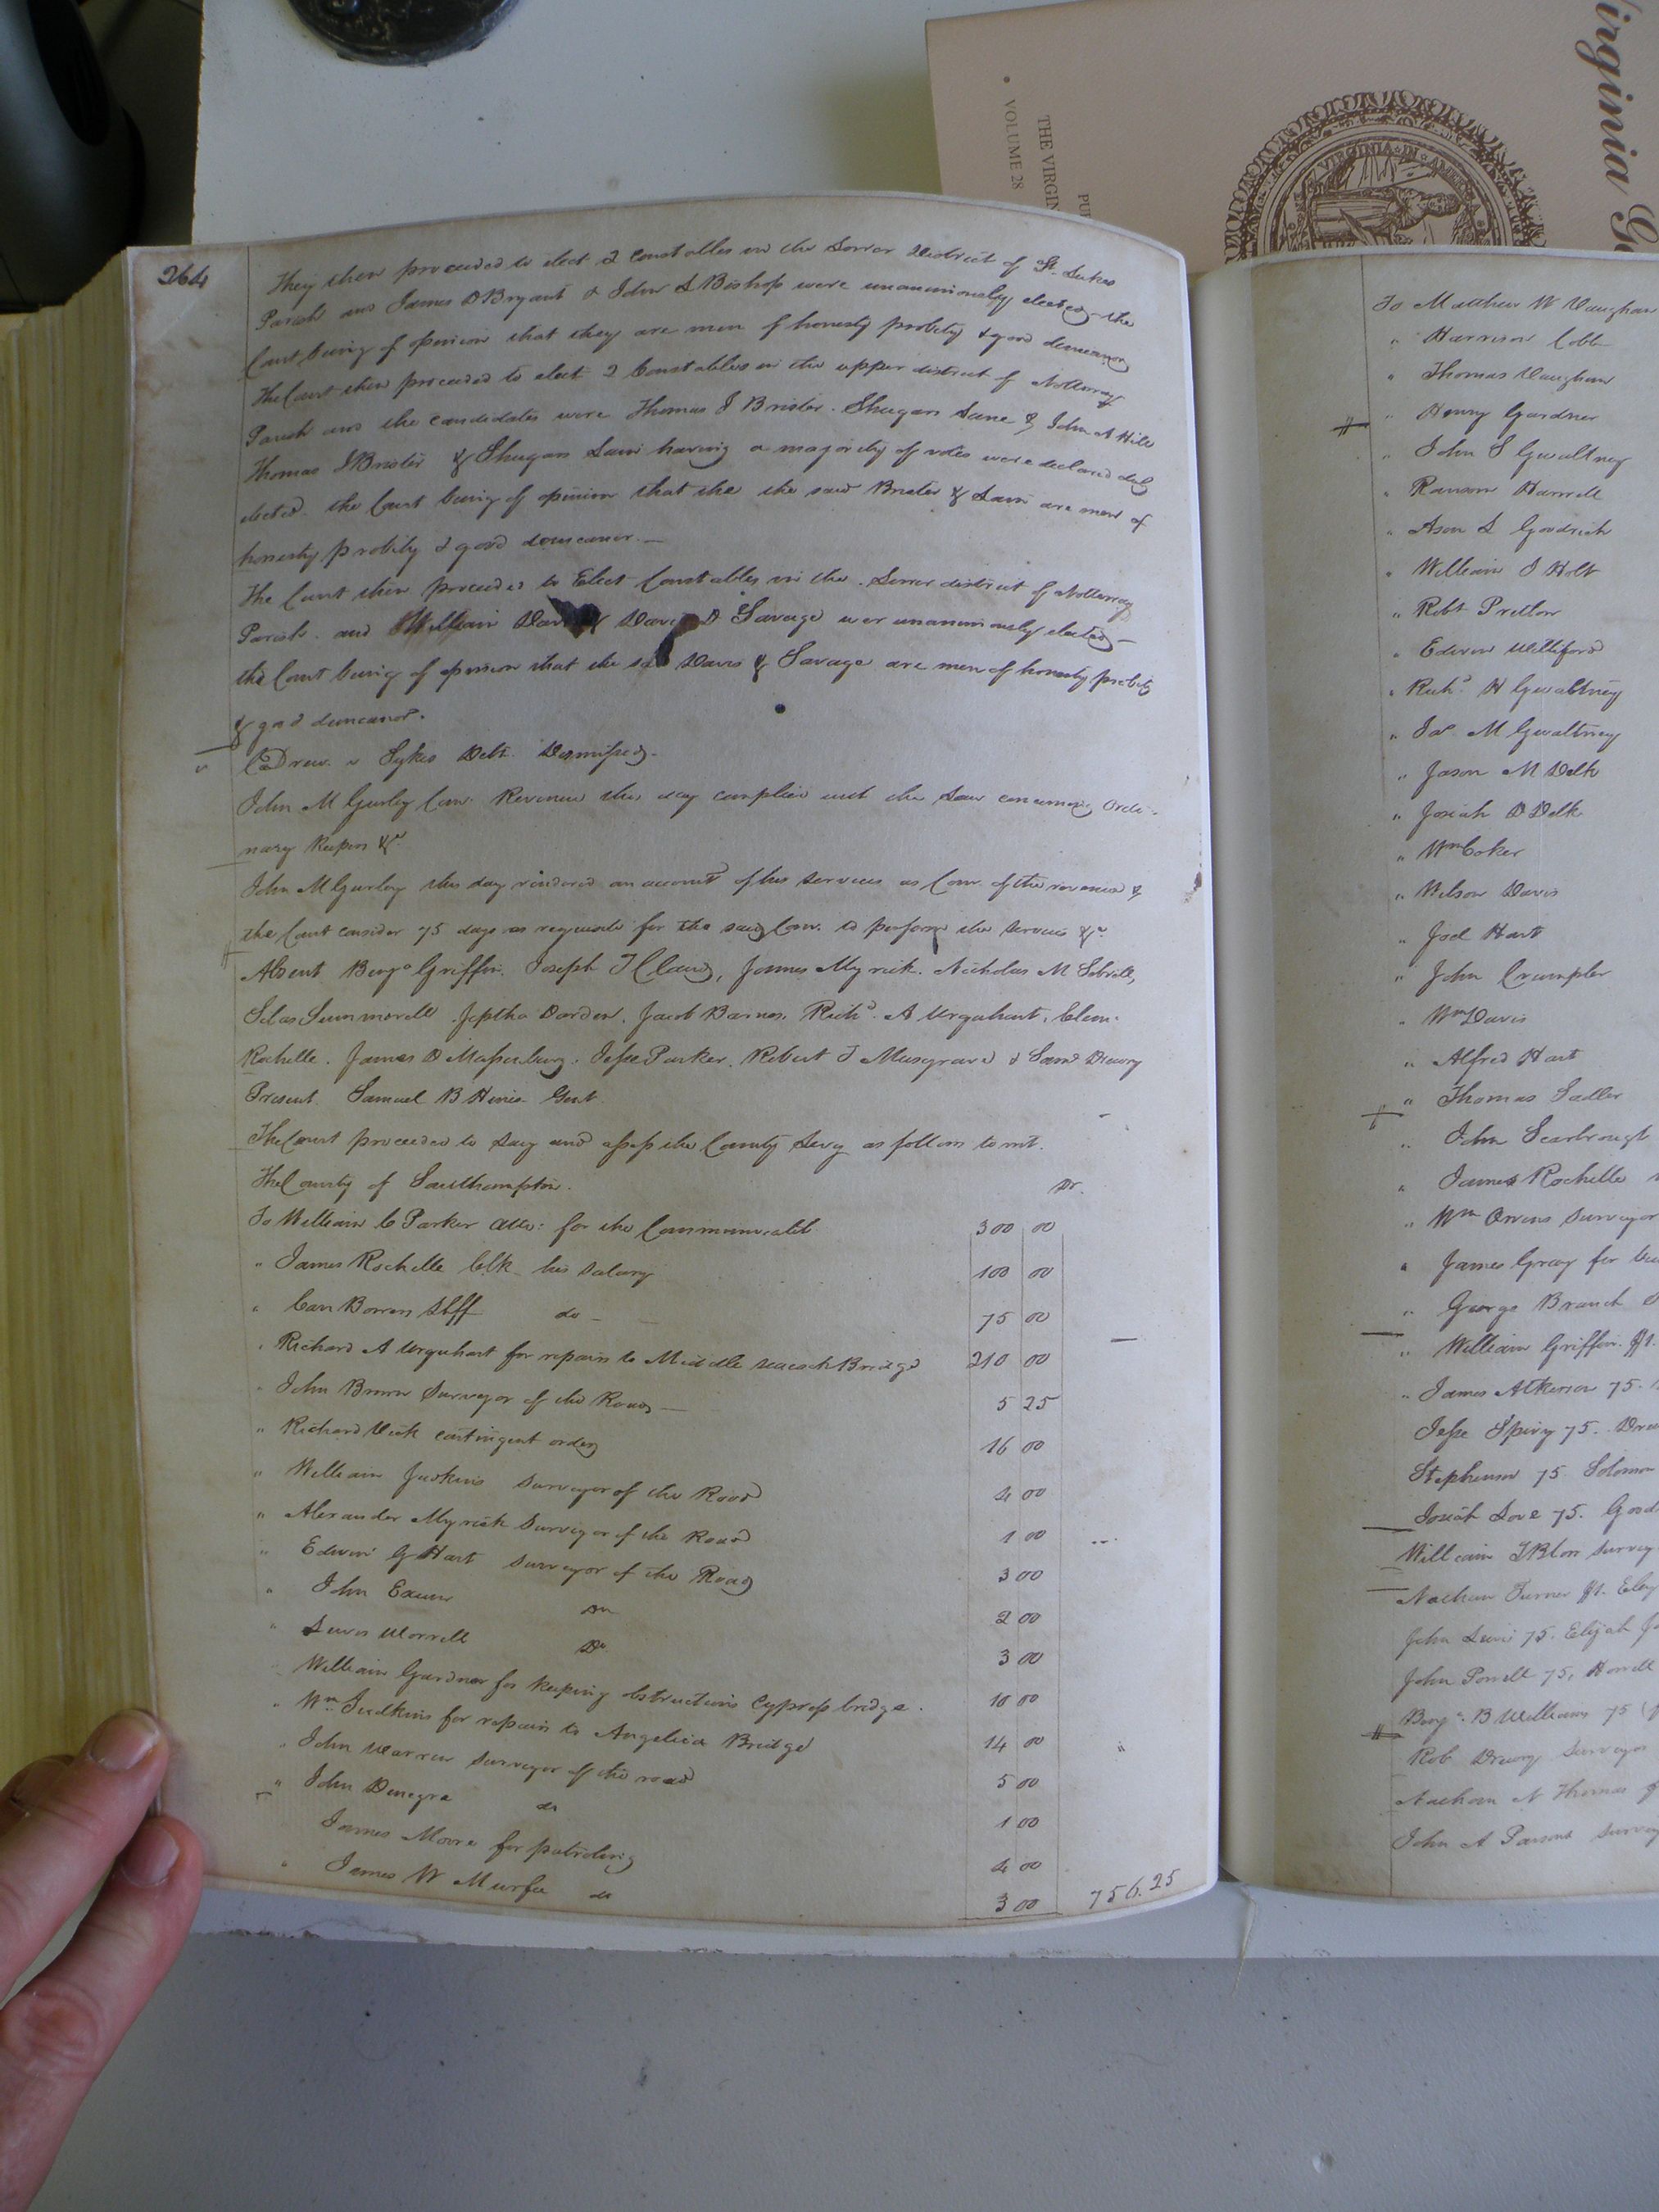 irginia Ge
THE VIRGIN
VOLUME 28
PU
VIRGINIA IN AMER
264
They then proceeded to elect 2 Constables in the Lower District of St. Lukes
Parish and James D Bryant & John L Bishop were unanimously elected the
Court being of opinion that they are men of honesty probity & good demeanor
The Court then proceeded to elect 2 Constables in the upper district of Nottoway
Parish and the candidates were Thomas J Brister. Shugars Lane & John A Hill
Thomas J Brister & Shugars Lain having a majority of votes were declared duly
elected. the Court being of opinion that the the said Brister & Lain are men of
honesty probity & good demeanor. —
The Court then proceeded to Elect Constables in the Lower district of Nottoway
Parish. and William Davis & David D Savage wer unanimously elected —
the Court being of opinion that the sd Davis & Savage are men of honesty probity
& good demeanor.
v Drew v Sykes Debt. Dismissed.
John M Gurley Com: Revenue this day complied with the Law concerning Ordi-
nary Keepers &c
John M Gurley this day rendered an account of his services as Com. of the revenue &
the Court consider 75 days as requisite for the said Com. to perform the services &c
Absent Benja Griffin. Joseph T Claud, James Myrick. Nicholas M Sebrell,
Silas Summerell Jeptha Darden, Jacob Barnes, Richd. A Urquhart, Clem.
Rochelle. James D Massenburg. Jesse Parker. Robert T Musgrave & Saml Drewry
Present Samuel B Hines Gent.
The Court proceeded to Lay and assess the County Levy as follows to wit.
The County of Southampton. Dr.
To William C Parker atto: for the Commonwealth 300 00
" James Rochelle Clk his salary 100 00
" Carr Bowers Shff do — 75 00
" Richard A Urquhart for repairs to Middle Bridge 210 00
" John Brown Surveyor of the Road — 5 25
" Richard Vick contingent order 16 00
" William Judkins Surveyor of the Road 4 00
" Alexander Myrick Surveyor of the Road 1 00
" Edwin G Hart Surveyor of the Road 3 00
" John Exum Do 2 00
" Lewis Worrell Do 3 00
William Gardner for keeping obstructions Cypress bridge. 10 00
" Wm. Judkins for repairs to Angelica Bridge 14 00
" John Warren Surveyor of the road 5 00
" John Denegre do 1 00
James Moore for patroling 4 00
" James W Murfee do 3 00 756.25
To Matthew W Vaughan
" Harrison Cobb
" Thomas Vaughan
" Henry Gardner
" John S Gwaltney
" Ransom Harrell
" Ason L Goodrich
" William J Holt
" Robt Pretlow
" Edwin Williford
" Richd H Gwaltney
" Jas M Gwaltney
" Jason M Delk
" Josiah D Delk
" Wm Coker
" Wilson Davis
" Joel Hart
" John Crumpler
" Wm Davis
" Alfred Hart
" Thomas Sadler
" John Scarbrough
" James Rochelle
" Wm Owens Surveyor
" James Gray for
" George Branch
" William Griffin.
" James Atkerson 75.
Jesse Spivy 75.
Stephenson 75 Solomon
Josiah Love 75.
William survey
Nathan Turner
John 75. Elijah
John Powell 75, Howell
Benja. B Williams 75
Rob Drewry Surveyor
Nathan N Thomas
John A Parsons Survey